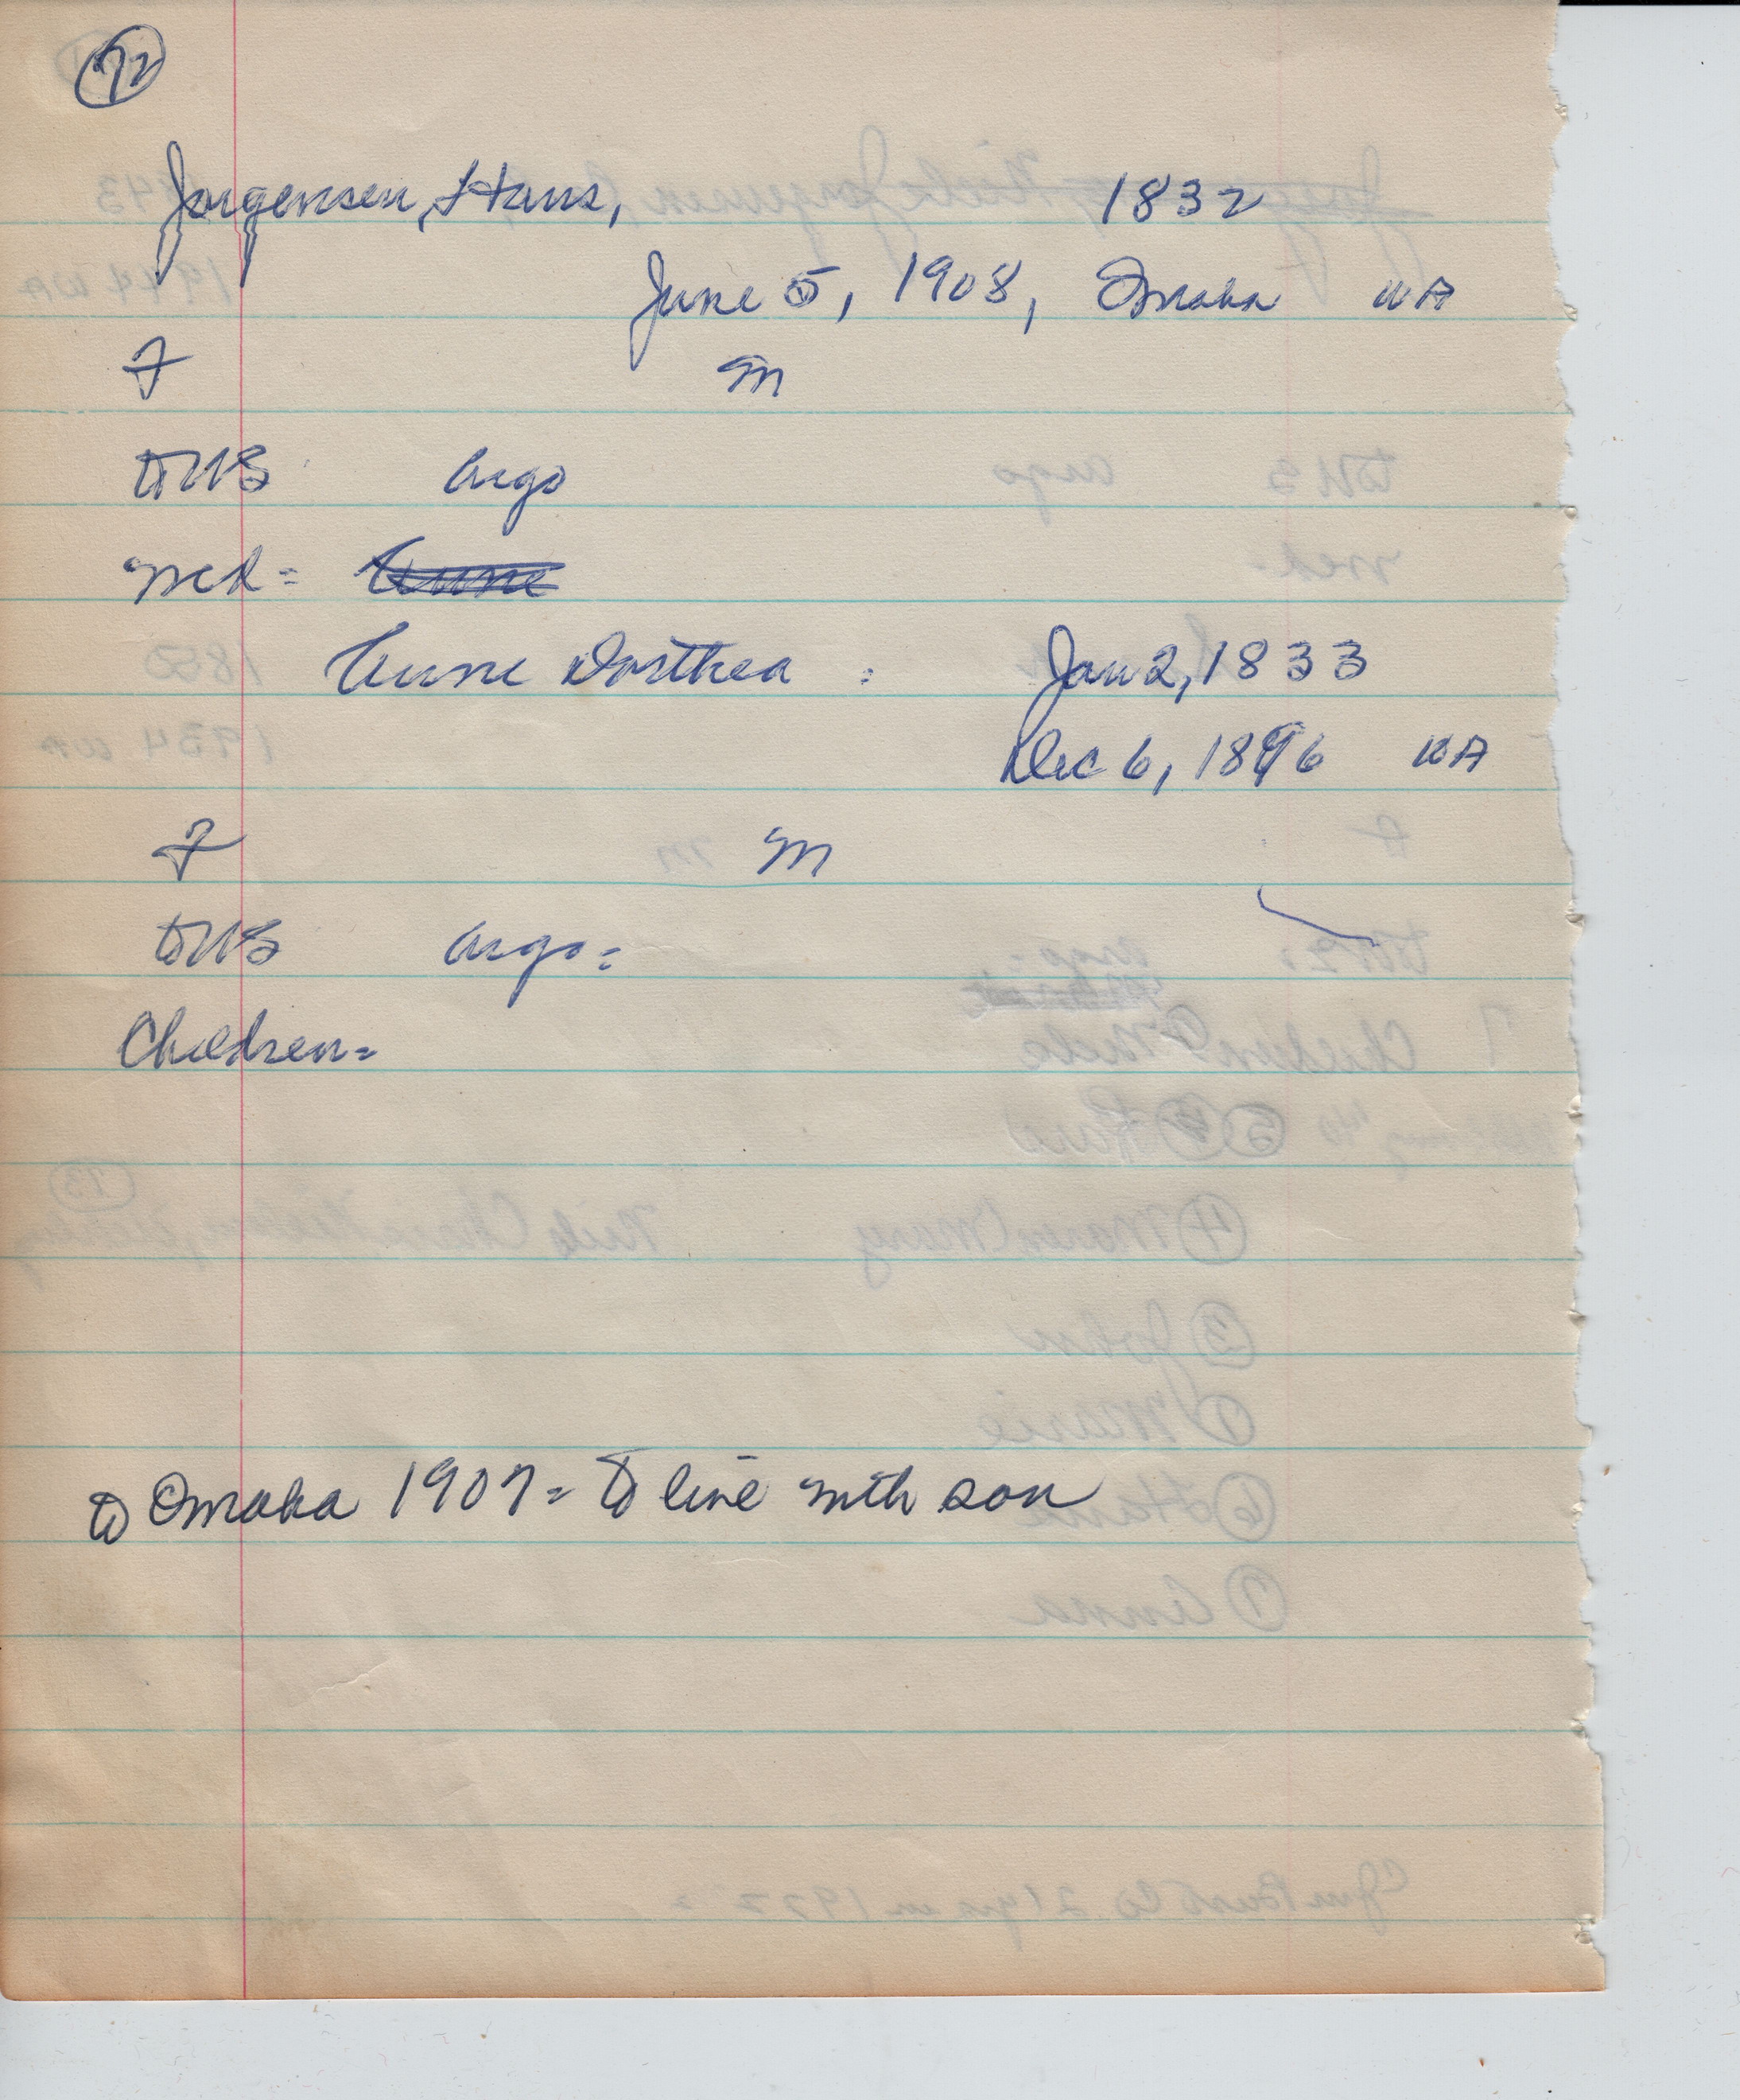 72
Jorgensen, Hans, 1832
June 5, 1908, Omaha WA
F M
to US Argo
med = Anne
Anne Dorthea : Jan 2, 1833
Dec 6, 1896 WA
F M
to US Argo =
Children =
to Omaha 1907 = to live with son